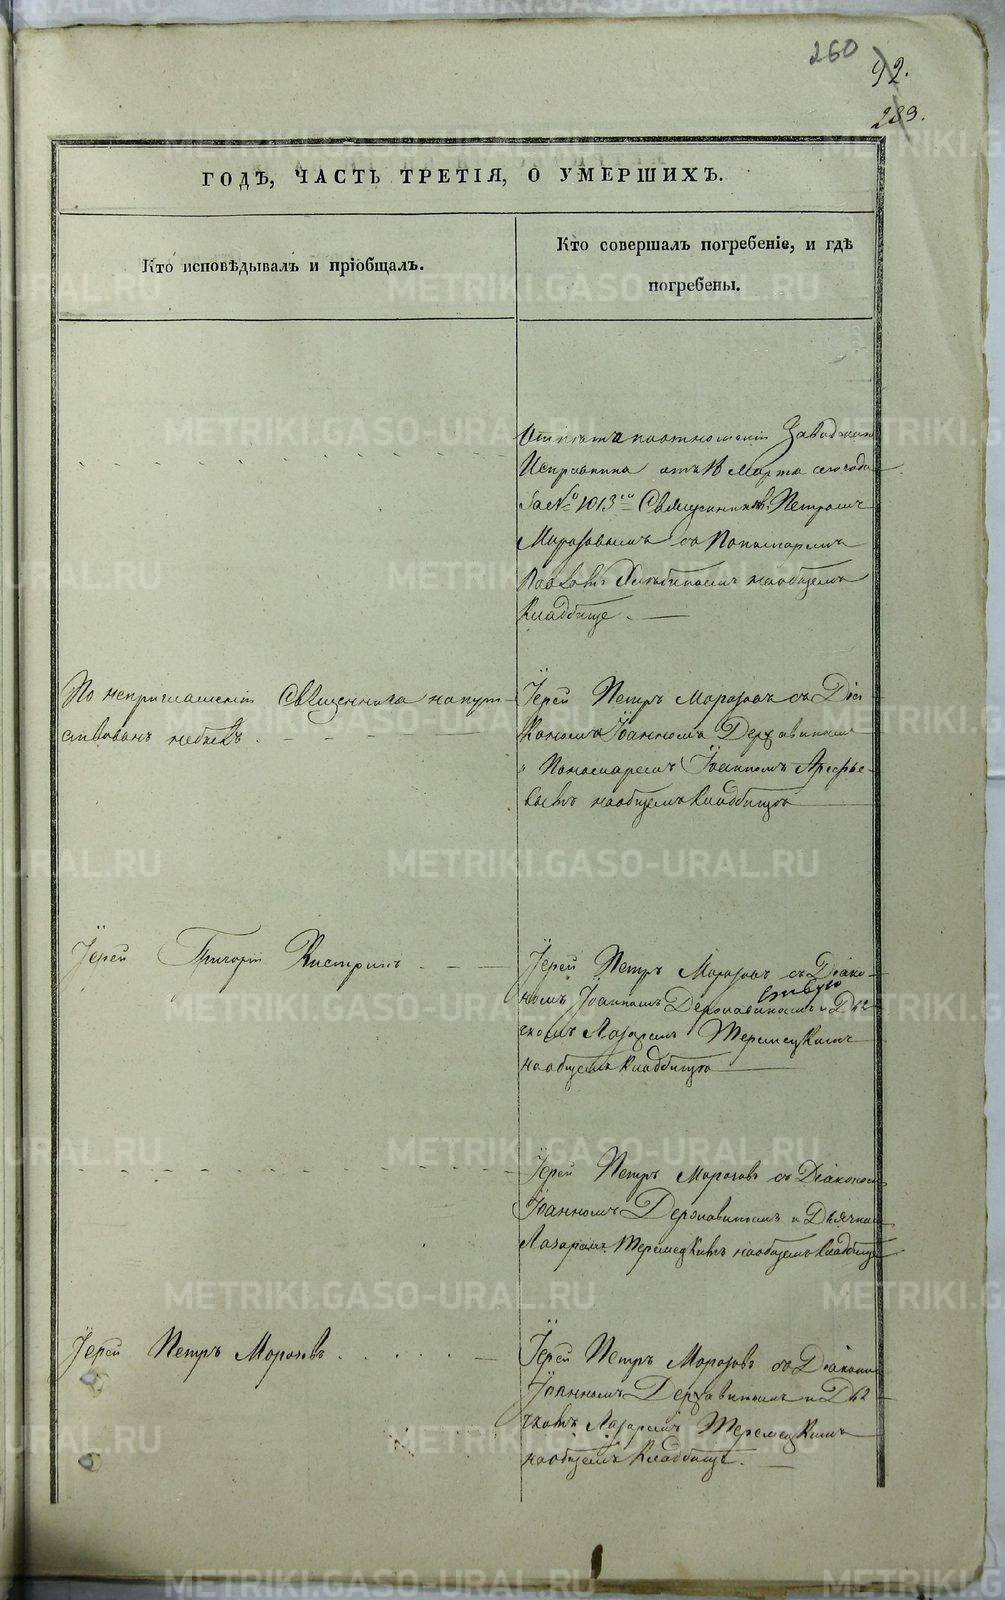 260
92.
289.
ГОДЪ, ЧАСТЬ ТРЕТІЯ, О УМЕРШИХЪ.
Кто исповѣдывалъ и пріобщалъ.
Кто совершалъ погребеніе, и гдѣ
погребены.
Отпѣтъ по отношенію Заводскаго
Исправника отъ Марта сего года
За № 1013 Священникомъ Петромъ
Морозовымъ съ Пономаремъ
на общемъ
кладбище.
По неприглашенію Священника напут-
ствованъ небылъ.
Іерей Петръ Морозовъ съ Діа
кономъ Іоанномъ Державинымъ
и Пономаремъ Іоанномъ Арефье-
вымъ на общемъ кладбищѣ
Іерей Григорій Кистринъ
Іерей Петръ Морозовъ съ Діако-
номъ Іоанномъ Державинымъ и Дья
чкомъ Лазаремъ Теремецкимъ
на общемъ кладбищѣ
Іерей Петръ Морозовъ съ Діакономъ
Іоанномъ Державинымъ и Дьячкомъ
Лазаремъ Теремецкимъ на общемъ кладбище
Іерей Петръ Морозовъ
Іерей Петръ Морозовъ съ Діакономъ
Іоанномъ Державинымъ и Дья
чкомъ Лазаремъ Теремецкимъ
на общемъ кладбище.
METRIKI.GASO-URAL.RU